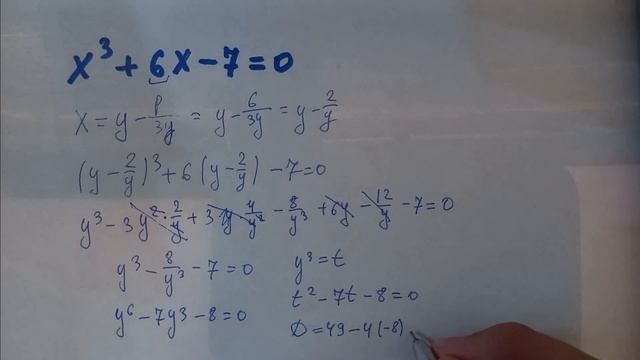 x³ + 6x - 7 = 0
x = y - p/3y = y - 6/3y = y - 2/y
(y - 2/y)³ + 6(y - 2/y) - 7 = 0
y³ - 3y² · 2/y + 3y · 4/y² - 8/y³ + 6y - 12/y - 7 = 0
y³ - 8/y³ - 7 = 0
y⁶ - 7y³ - 8 = 0
y³ = t
t² - 7t - 8 = 0
D = 49 - 4(-8)